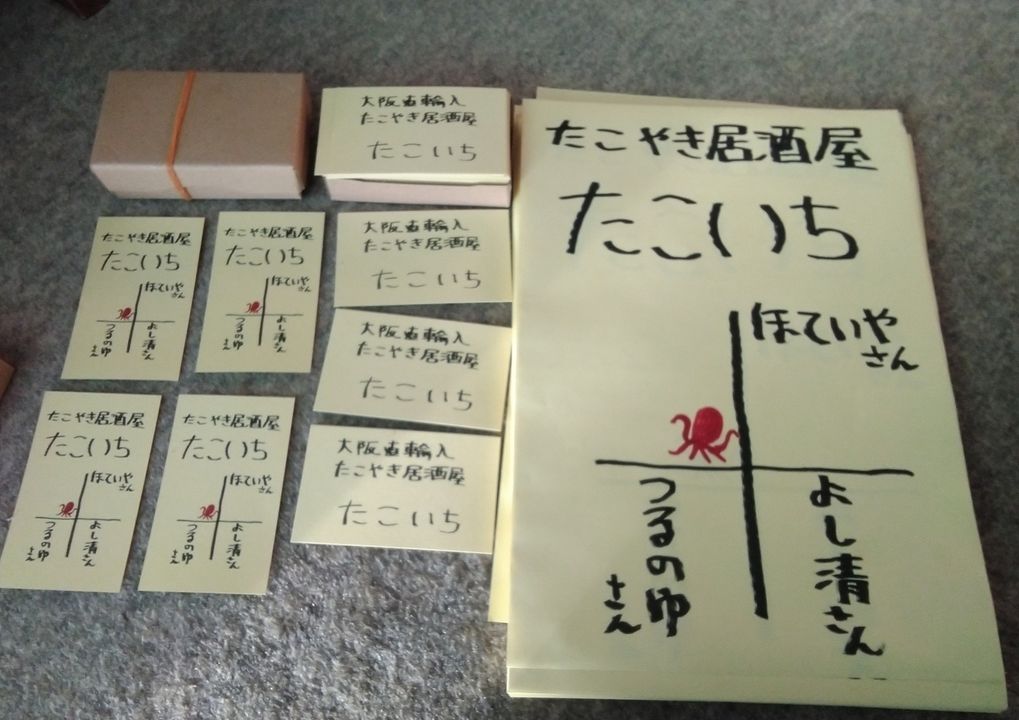 大阪直輸入
たこやき居酒屋
たこいち
大阪直輸入
たこやき居酒屋
たこいち
大阪直輸入
たこやき居酒屋
たこいち
大阪直輸入
たこやき居酒屋
たこいち
たこやき居酒屋
たこいち
ほていや
さん
つるのゆ
さん
よし清さん
たこやき居酒屋
たこいち
ほていや
さん
つるのゆ
さん
よし清さん
たこやき居酒屋
たこいち
ほていや
さん
つるのゆ
さん
よし清さん
たこやき居酒屋
たこいち
ほていや
さん
つるのゆ
さん
よし清さん
たこやき居酒屋
たこいち
ほていや
さん
つるのゆ
さん
よし清さん